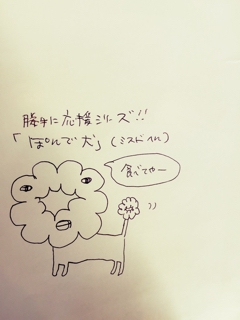 勝手に応援シリーズ!!
「ぽんで犬」(ミスドへん)
食べてやー